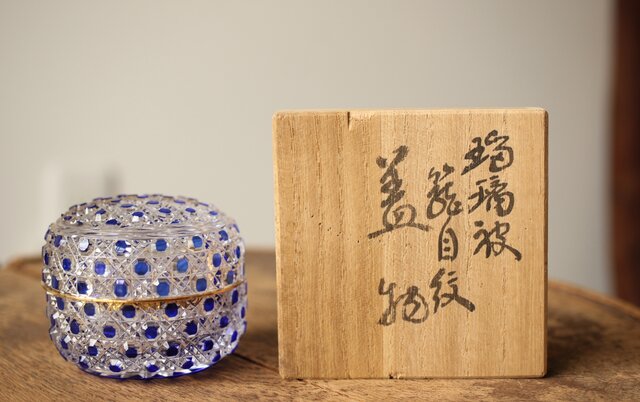 瑠璃被
籠目紋
蓋物